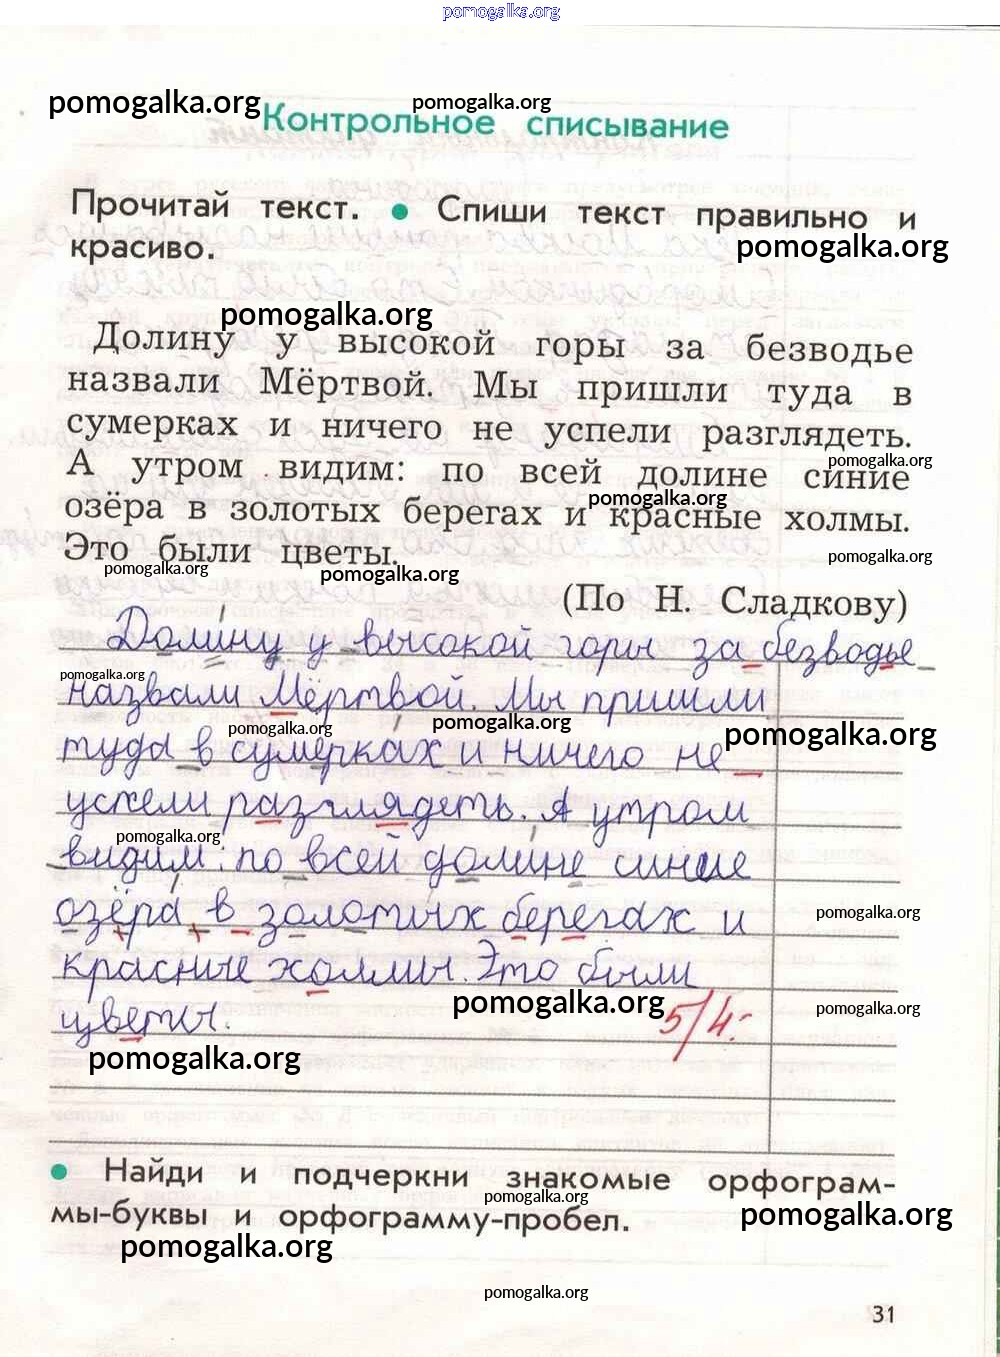 pomogalka.org
pomogalka.org
pomogalka.org
Контрольное списывание
Прочитай текст. • Спиши текст правильно и
красиво.
pomogalka.org
pomogalka.org
Долину у высокой горы за безводье
назвали Мёртвой. Мы пришли туда в
сумерках и ничего не успели разглядеть.
pomogalka.org
А утром видим: по всей долине синие
pomogalka.org
озёра в золотых берегах и красные холмы.
Это были цветы.
pomogalka.org
pomogalka.org
pomogalka.org
(По Н. Сладкову)
Долину у высокой горы за безводье
pomogalka.org
назвали Мёртвой. Мы пришли
pomogalka.org
pomogalka.org
pomogalka.org
туда в сумерках и ничего не
успели разглядеть. А утром
pomogalka.org
видим: по всей долине синие
озёра в золотых берегах и
pomogalka.org
красные холмы. Это были
pomogalka.org
pomogalka.org
цветы.
5/4.
pomogalka.org
• Найди и подчеркни знакомые орфограм-
pomogalka.org
мы-буквы и орфограмму-пробел.
pomogalka.org
pomogalka.org
pomogalka.org
31